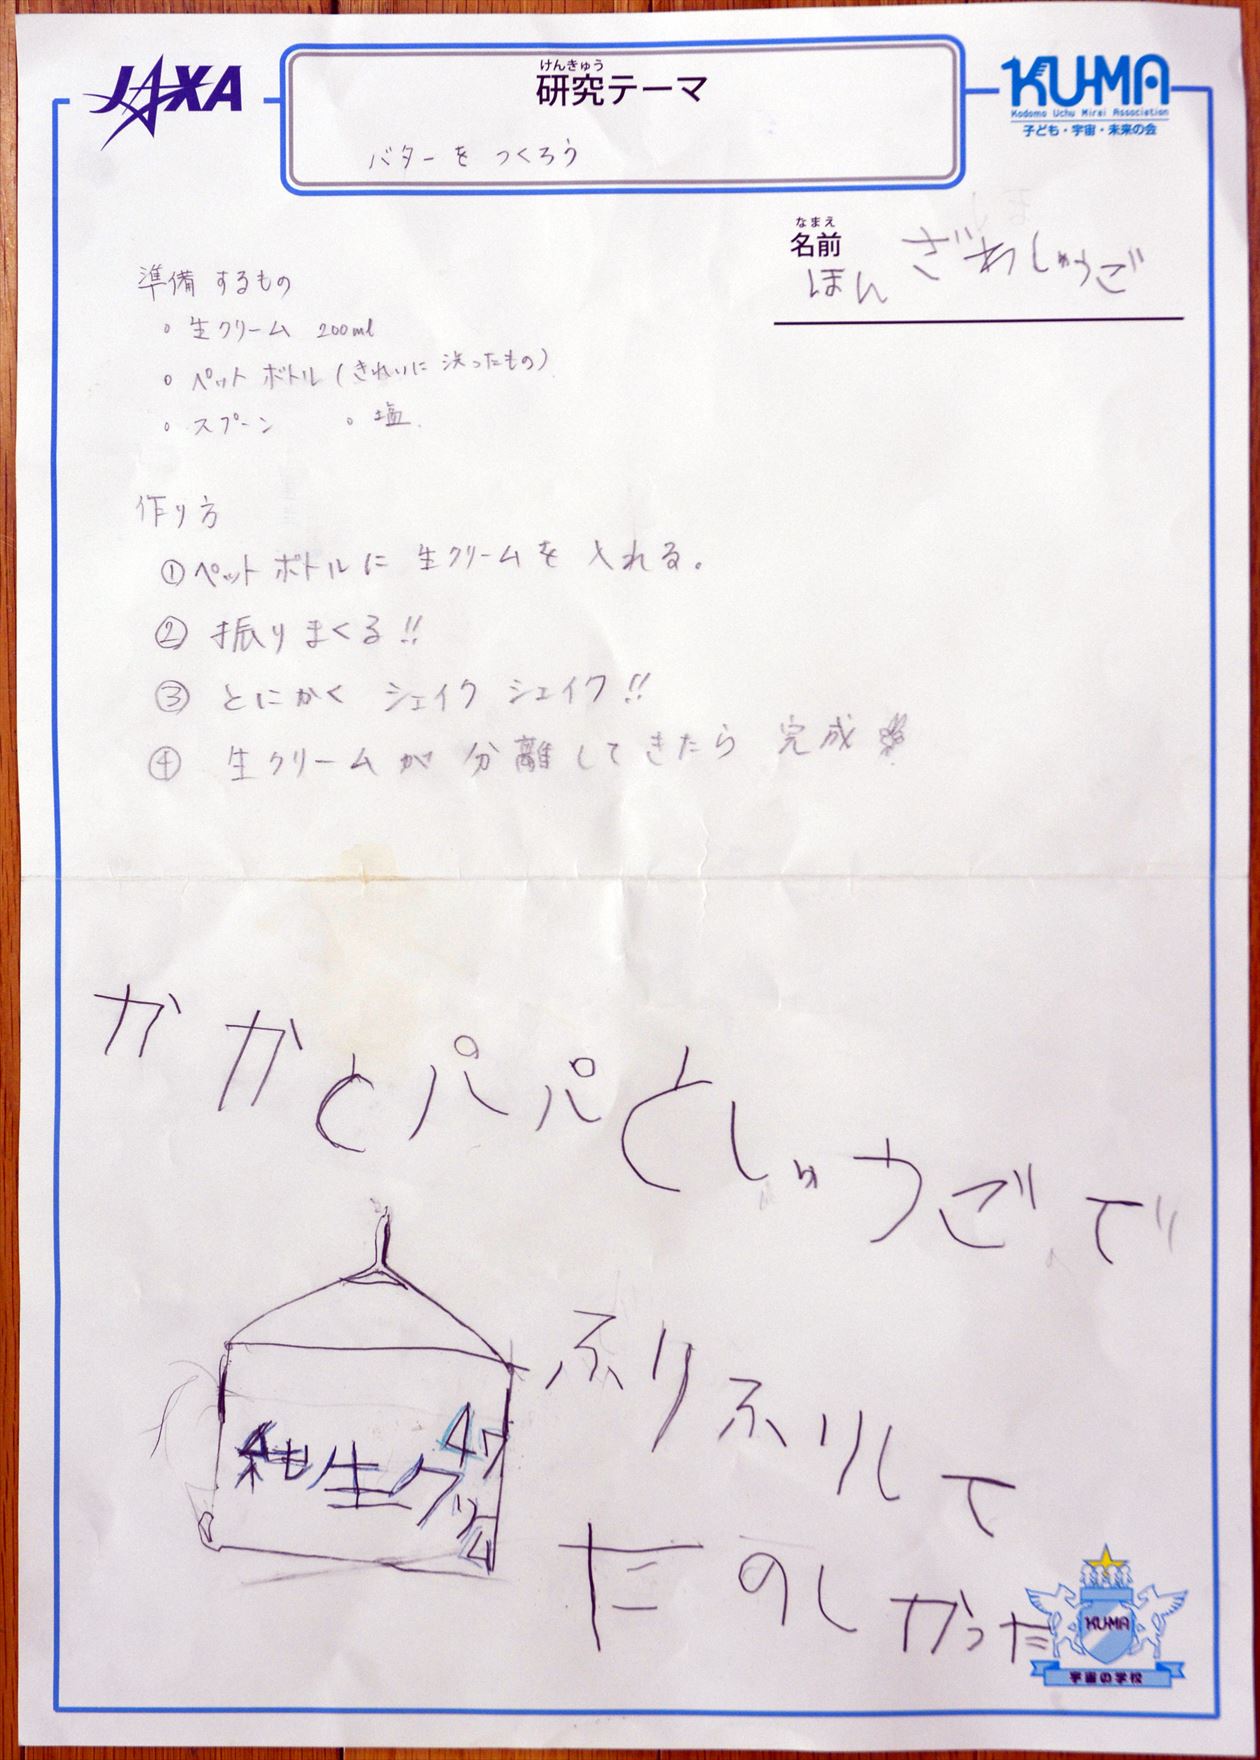 JAXA
けんきゅう
研究テーマ
バターを つくろう
KU-MA
Kodomo Uchu Mirai Association
子ども・宇宙・未来の会
なまえ
名前
ほんざわしゅうご
準備するもの
◦ 生クリーム 200ml
◦ ペットボトル(きれいに洗ったもの)
◦ スプーン ◦ 塩
作り方
① ペットボトルに 生クリームを 入れる。
② 振りまくる!!
③ とにかく シェイク シェイク!!
④ 生クリームが 分離してきたら 完成
かかとパパとしゅうごで
ふりふりして
たのしかった
純生ク
KU-MA
宇宙の学校